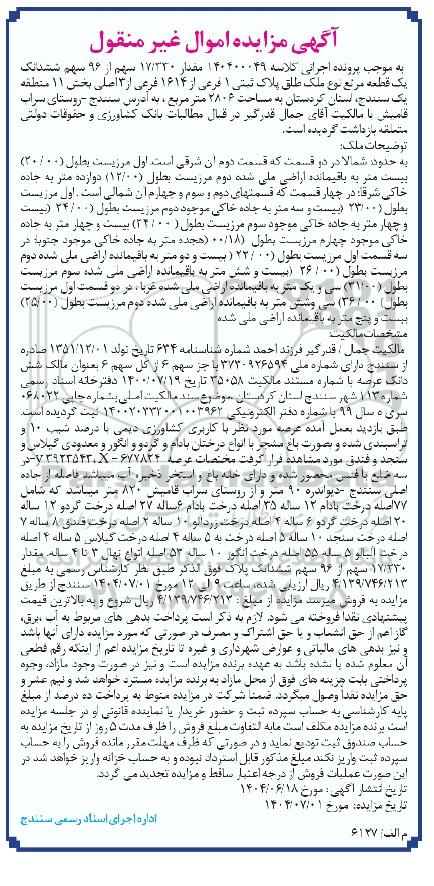 آگهی مزایده اموال غیر منقول
به موجب پرونده اجرائی کلاسه ۱۴۰۴۰۰۰۴۹ مقدار ۱۷/۳۳۰ سهم از ۹۶ سهم ششدانگ
یک قطعه مرتع نوع ملک طلق پلاک ثبتی ۱ فرعی از ۱۶۱۴ فرعی از ۳اصلی بخش ۱۱ منطقه
یک سنندج، استان کردستان به مساحت ۲۸۰۶ متر مربع ، به آدرس سنندج -روستای سراب
قامیش با مالکیت آقای جمال قدرگیر در قبال مطالبات بانک کشاورزی و حقوقات دولتی
متعلقه بازداشت گردیده است.
توضیحات ملک:
به حدود: شمالا: در دو قسمت که قسمت دوم آن شرقی است. اول مرزیست بطول (۲۰/۰۰)
بیست متر به باقیمانده اراضی ملی شده دوم مرزیست بطول (۱۲/۰۰) دوازده متر به جاده
خاکی شرقا: در چهار قسمت که قسمتهای دوم و سوم و چهارم آن شمالی است . اول مرزیست
بطول (۲۳/۰۰) (بیست و سه متر به جاده خاکی موجود دوم مرزیست بطول (۲۴/۰۰) (بیست
و چهار متر به جاده خاکی موجود سوم مرزیست بطول (۲۴/۰۰) بیست و چهار متر به جاده
خاکی موجود چهارم مرزیست بطول (۰۰/۱۸) (هجده متر به جاده خاکی موجود جنوبا: در
سه قسمت اول مرزیست بطول (۲۲/۰۰) (بیست و دو متر به باقیمانده اراضی ملی شده دوم
مرزیست بطول (۲۶/۰۰) (بیست و شش متر به باقیمانده اراضی ملی شده سوم مرزیست
بطول (۳۱/۰۰) سی و یک متر به باقیمانده اراضی ملی شده غربا : در دو قسمت اول مرزیست
بطول (۳۶/۰۰) سی وشش متر به باقیمانده اراضی ملی شده دوم مرزیست بطول (۲۵/۰۰)
بیست و پنج متر به باقیمانده اراضی ملی شده
مشخصات مالکیت:
مالکیت جمال / قدرگیر فرزند احمد شماره شناسنامه ۶۳۴ تاریخ تولد ۱۳۵۱/۱۲/۰۱ صادره
از سنندج دارای شماره ملی ۳۷۳۰۹۲۶۵۹۴ با جز سهم ۶ از کل سهم ۶ بعنوان مالک شش
دانگ عرصه با شماره مستند مالکیت ۳۵۰۵۸ تاریخ ۱۴۰۰/۰۷/۱۹ دفترخانه اسناد رسمی
شماره ۱۱۳ شهر سنندج استان کردستان .موضوع سند مالکیت اصلی بشماره چاپی ۰۶۸۰۲۲
سری ه سال ۹۹ با شماره دفتر الکترونیکی ۱۴۰۰۲۰۳۳۲۰۰۱۰۰۳۹۶۲ ثبت گردیده است.
طبق بازدید بعمل آمده عرصه مورد نظر با کاربری کشاورزی دیمی با درصد شیب ۱۰ و
تراسبندی شده و بصورت باغ مشجر با انواع درختان بادام و گردو و انگور و معدودی گیلاس و
سنجد و فندق مورد مشاهده قرار گرفت مختصات عرصه
سه ضلع با فنس محصور شده و دارای خانه باغ و استخر ذخیره آب میباشد فاصله از جاده
اصلی سنندج -دیواندره ۹۰ متر و از روستای سراب قامیش ۸۲۰ متر میباشد که شامل
۷۷اصله درخت بادام ۱۲ ساله ۳۵ اصله درخت بادام ۶ساله ۲۷ اصله درخت گردو ۱۲ ساله
۲۰ اصله درخت گردو ۶ ساله ۴ اصله درخت زردآلو ۱۰ ساله ۲ اصله درخت فندق ۸ ساله ۷
اصله درخت سنجد ۱۰ ساله ۵ اصله درخت به ۵ ساله ۴ اصله درخت گیلاس ۵ ساله ۴ اصله
درخت آلبالو ۵ ساله ۵۵ اصله درخت انگور ۱۰ ساله ۵۳ اصله انواع نهال ۳ تا ۴ ساله. مقدار
۱۷/۳۳۰ سهم از ۹۶ سهم ششدانگ پلاک فوق الذکر طبق نظر کارشناس رسمی به مبلغ
۴/۱۳۹/۷۴۶/۲۱۳ ریال ارزیابی شده، ساعت ۹ الی ۱۲ مورخ ۱۴۰۴/۰۷/۰۱ سنندج از طریق
مزایده به فروش میرسد مزایده از مبلغ : ۴/۱۳۹/۷۴۶/۲۱۳ ریال شروع و به بالاترین قیمت
پیشنهادی نقدا فروخته می شود. لازم به ذکر است پرداخت بدهی های مربوط به آب ،برق،
گاز اعم از حق انشعاب و یا حق اشتراک و مصرف در صورتی که مورد مزایده دارای آنها باشد
و نیز بدهی های مالیاتی و عوارض شهرداری و غیره تا تاریخ مزایده اعم از اینکه رقم قطعی
آن معلوم شده یا نشده باشد به عهده برنده مزایده است و نیز در صورت وجود مازاد، وجوه
پرداختی بابت هزینه های فوق از محل مازاد به برنده مزایده مسترد خواهد شد و نیم عشر و
حق مزایده نقدا وصول میگردد. ضمنا شرکت در مزایده منوط به پرداخت ده درصد از مبلغ
پایه کارشناسی به حساب سپرده ثبت و حضور خریدار یا نماینده قانونی او در جلسه مزایده
است برنده مزایده مکلف است مابه التفاوت مبلغ فروش را ظرف مدت ۵ روز از تاریخ مزایده به
حساب صندوق ثبت تودیع نماید و در صورتی که ظرف مهلت مقرر مانده فروش را به حساب
سپرده ثبت واریز نکند مبلغ مذکور قابل استرداد نبوده و به حساب خزانه واریز خواهد شد در
این صورت عملیات فروش از درجه اعتبار ساقط و مزایده تجدید می گردد.
تاریخ انتشار آگهی : مورخ ۱۴۰۴/۰۶/۱۸
تاریخ مزایده: مورخ ۱۴۰۴/۰۷/۰۱
اداره اجرای اسناد رسمی سنندج
م الف/ ۶۱۲۷